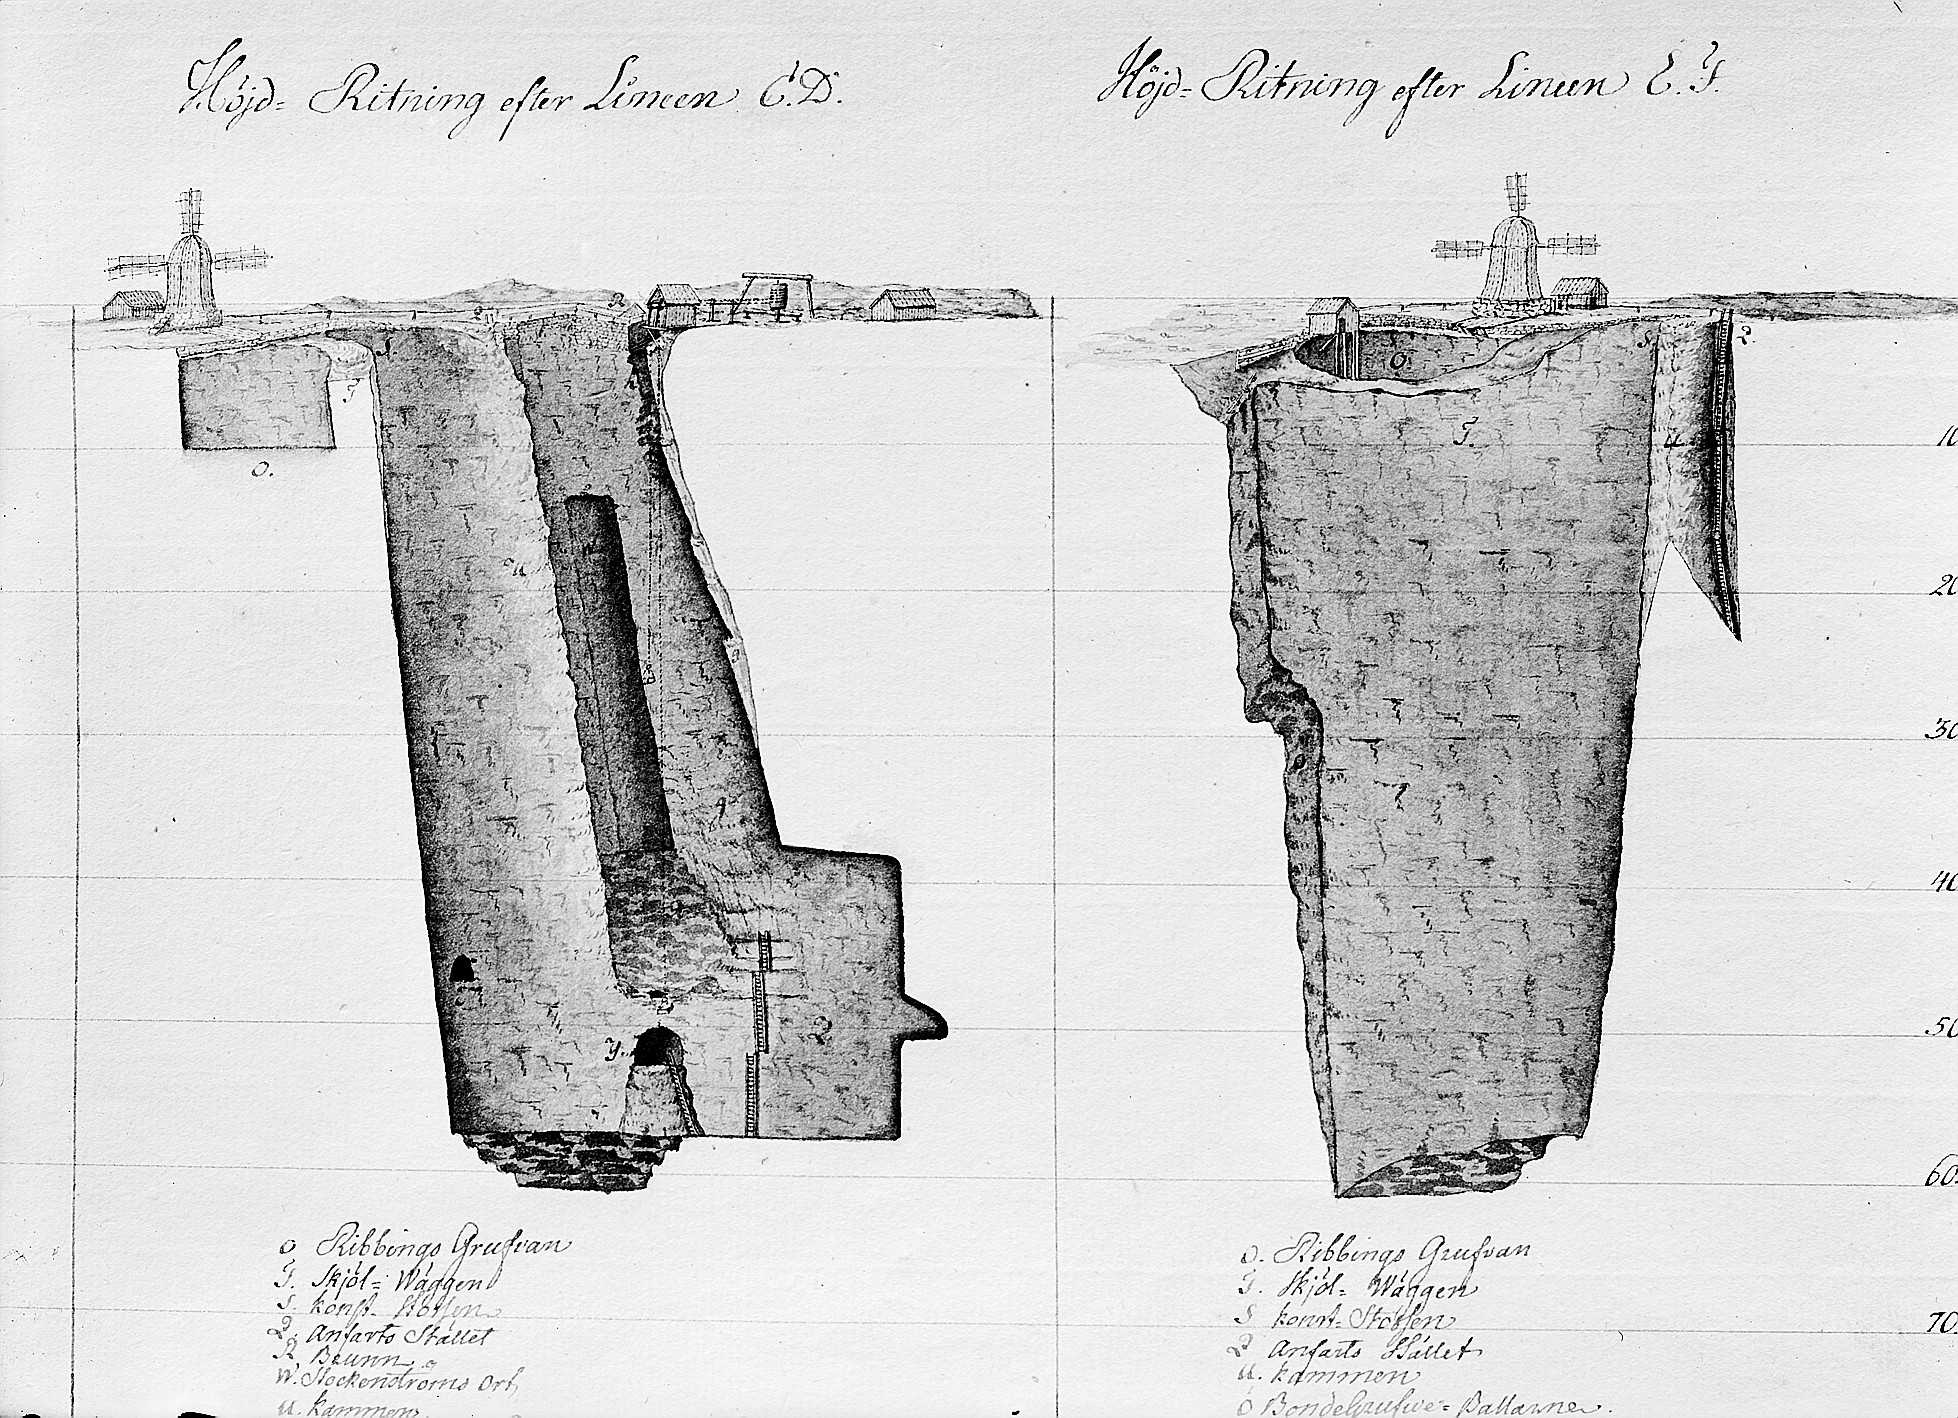 Höjd= Ritning efter Lineen C.D.
Höjd= Ritning efter Lineen E.F.
10
20
30
40
50
60.
70.
O.
O.
o Ribbings Grufvan
T. Skjöl= Wäggen
S. konst- Stötsen
Q. Anfarts Stället
R. Brunn
W. Stockenströms Ort
u. kammen
o. Ribbings Grufvan
T. Skjöl= Wäggen
S konst= Stötsen
Q Anfarts Stället
u. kammen
ö BondeGrufwe= Pallarne.